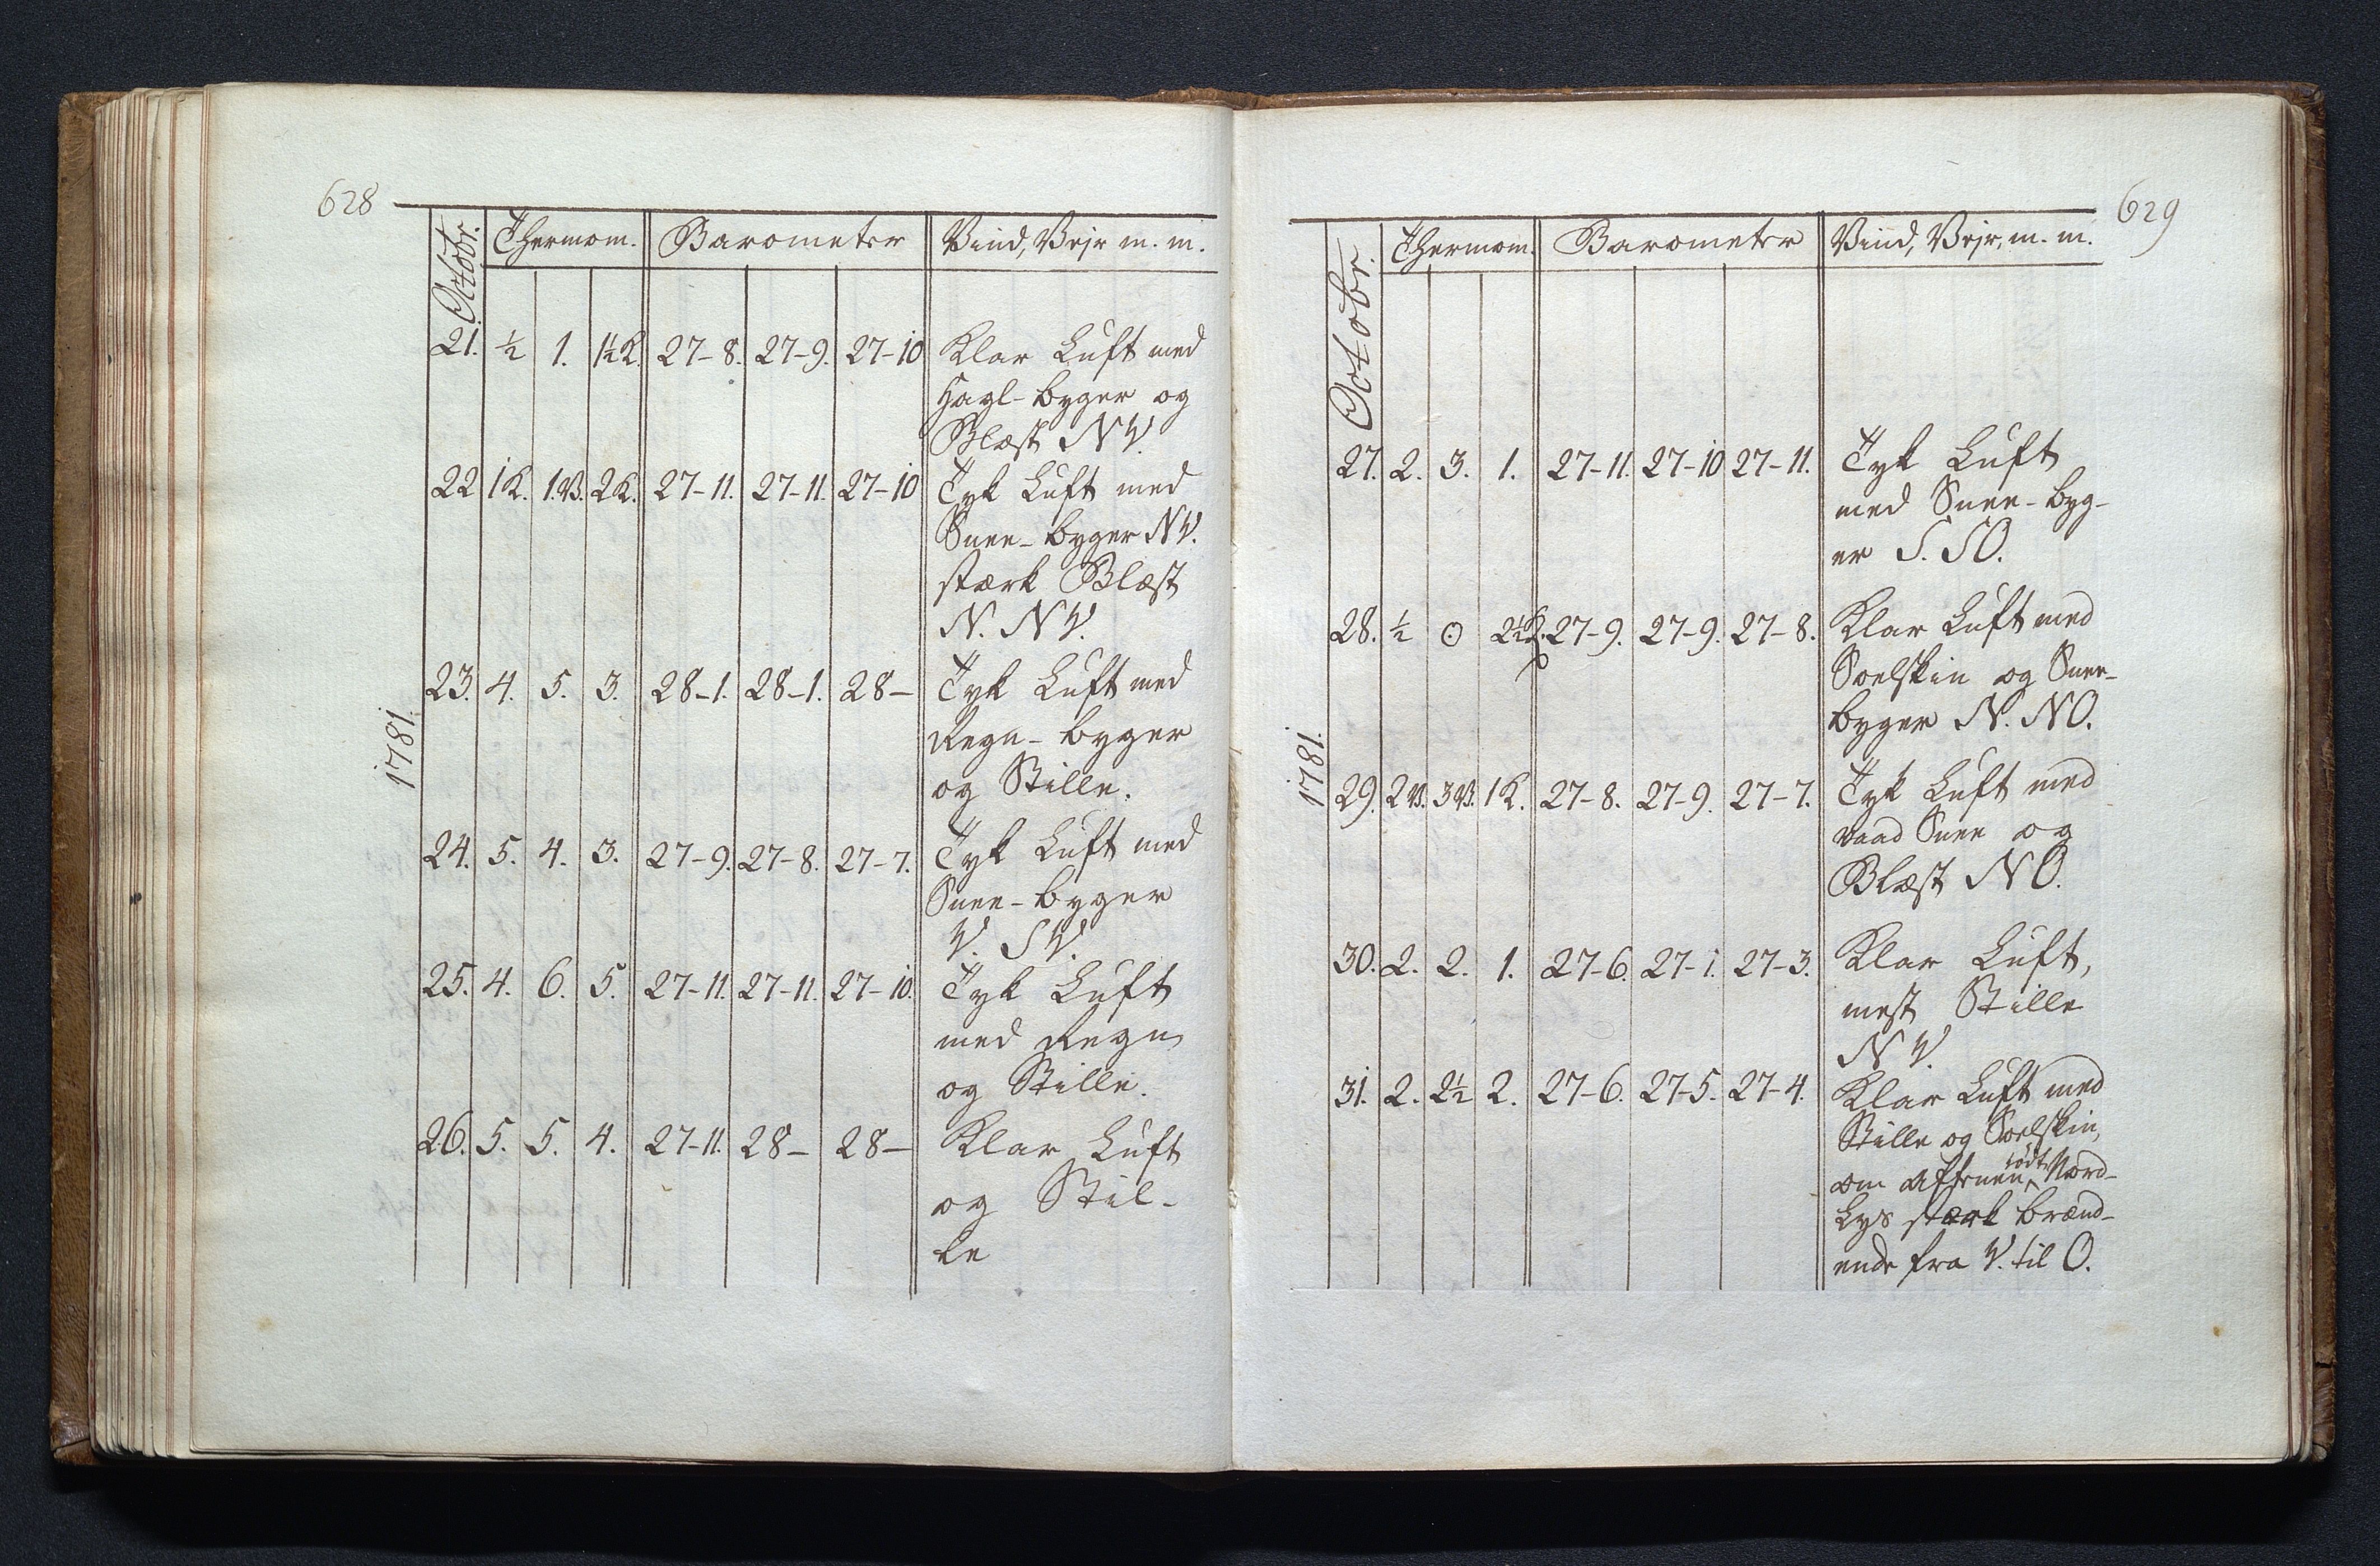 628
Octobr. Thermom. Barometer Vind, Vejr m. m.
21. ½ 1. 1½K. 27-8. 27-9. 27-10 Klar Luft med
Hagl-byger og
Blæst NV.
22 1K. 1.V. 2K. 27-11. 27-11. 27-10 Tyk Luft med
Snee-byger NV.
stærk Blæst
N. NV.
1781.
23. 4. 5. 3. 28-1. 28-1. 28- Tyk Luft med
Regn-byger
og Stille.
24. 5. 4. 3. 27-9. 27-8. 27-7. Tyk Luft med
Snee-byger
V. SV.
25. 4. 6. 5. 27-11. 27-11. 27-10. Tyk Luft
med Regn
og Stille.
26. 5. 5. 4. 27-11. 28- 28- Klar Luft
og Stil-
le
629
Octobr. Thermom. Barometer Vind, Vejr, m. m.
27. 2. 3. 1. 27-11. 27-10 27-11. Tyk Luft
med Snee-byg-
er S. SO.
28. ½ 0 2½K. 27-9. 27-9. 27-8. Klar Luft med
Soelskin og Snee-
byger N. NO.
1781.
29. 2V. 3V. 1K. 27-8. 27-9. 27-7. Tyk Luft med
vaad Snee og
Blæst NO.
30. 2. 2. 1. 27-6. 27-1. 27-3. Klar Luft,
mest Stille
NV.
31. 2. 2½ 2. 27-6. 27-5. 27-4. Klar Luft med
Stille og Soelskin,
om Aftenen rødt Nord-
Lys stærk brænd-
ende fra V. til O.